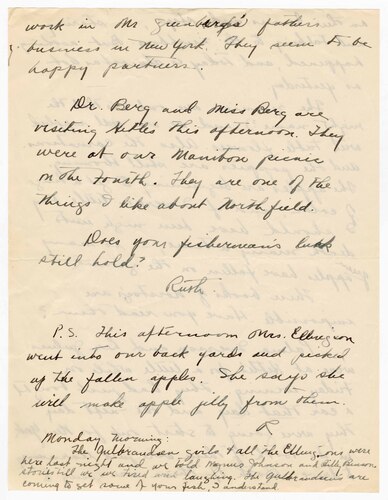 work in Mr Greenberg's fathers
business in New York. They seem to be
happy partners.
Dr. Berg and Miss Berg are
visiting Kittle's this afternoon. They
were at our Maniton picnic
on the Fourth. They are one of the
things I like about Northfield.
Does your fisherman's luck
still hold?
Ruth.
P.S. This afternoon Mrs. Ellingson
went into our back yards and picked
up the fallen apples. She says she
will make apple jelly from them.
R
Monday morning.
The Gulbrandsen girls & all the Ellingsons were
here last night and we told Magnus Johnson and
stories till we were tired from laughing. The Gulbrandsens are
coming to get some of your fish, I understand